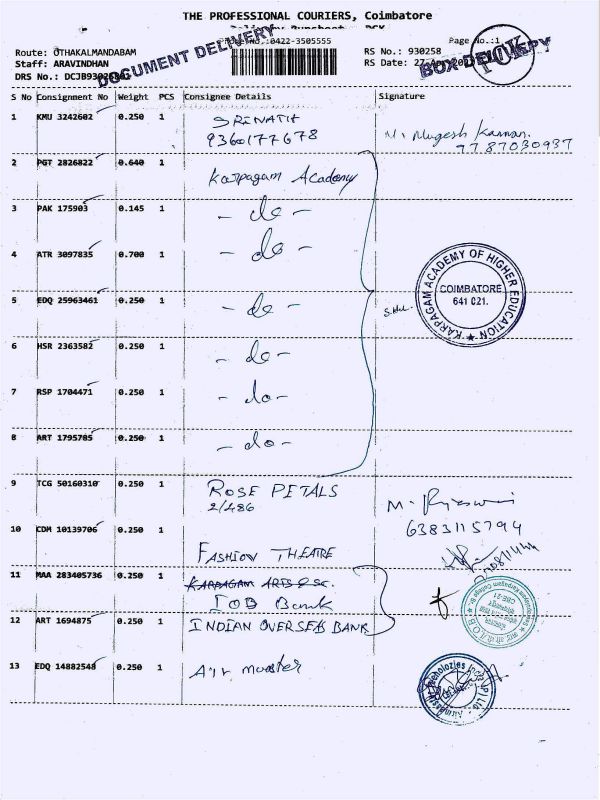 THE PROFESSIONAL COURIERS, Coimbatore
Phone No.:0422-3505555
Page No.:1
Route: OTHAKALMANDABAM
RS No.: 930258
Staff: ARAVINDHAN
DOCUMENT DELIVERY
BOX DELIVERY
S No Consignment No Weight PCS Consignee Details Signature
1 KMU 3242602 0.250 1 SRINATH
9360177678
9787030937
2 PGT 2826822 0.640 1 Karpagam Academy
3 PAK 175903 0.145 1 - do -
4 ATR 3097835 0.700 1 - do -
5 EDQ 25963461 0.250 1 - do -
KARPAGAM ACADEMY OF HIGHER EDUCATION
COIMBATORE
641 021.
6 HSR 2363582 0.250 1 - do -
7 RSP 1704471 0.250 1 - do -
8 ART 1795785 0.250 1 - do -
9 TCG 50160310 0.250 1 ROSE PETALS
2/486
6383115794
10 CDM 10139706 0.250 1 FASHION THEATRE
11 MAA 283405736 0.250 1 KARPAGAM ARTS
IOB Bank
12 ART 1694875 0.250 1 INDIAN OVERSEAS BANK
13 EDQ 14882548 0.250 1